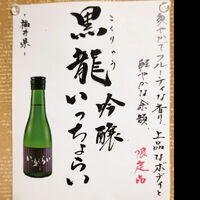 爽やかでフルーティな香り 上品なボディと
軽やかな余韻。
限定品
こくりゅう
黒龍 吟醸
いっちょらい
福井県
いっちょらい